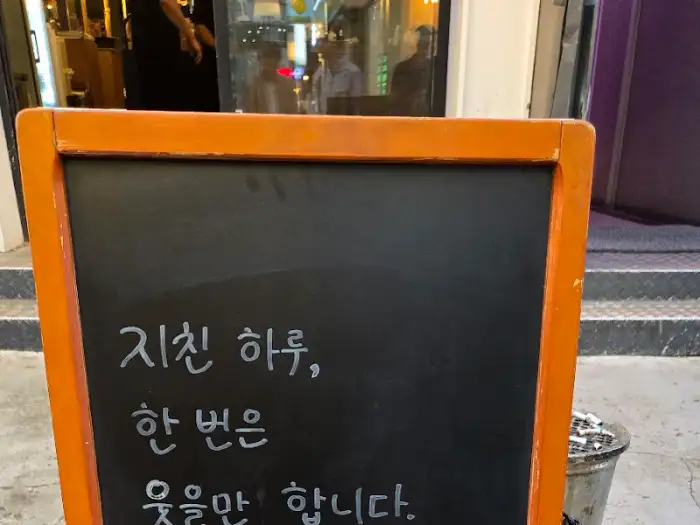 지친 하루,
한 번은
웃을만 합니다.